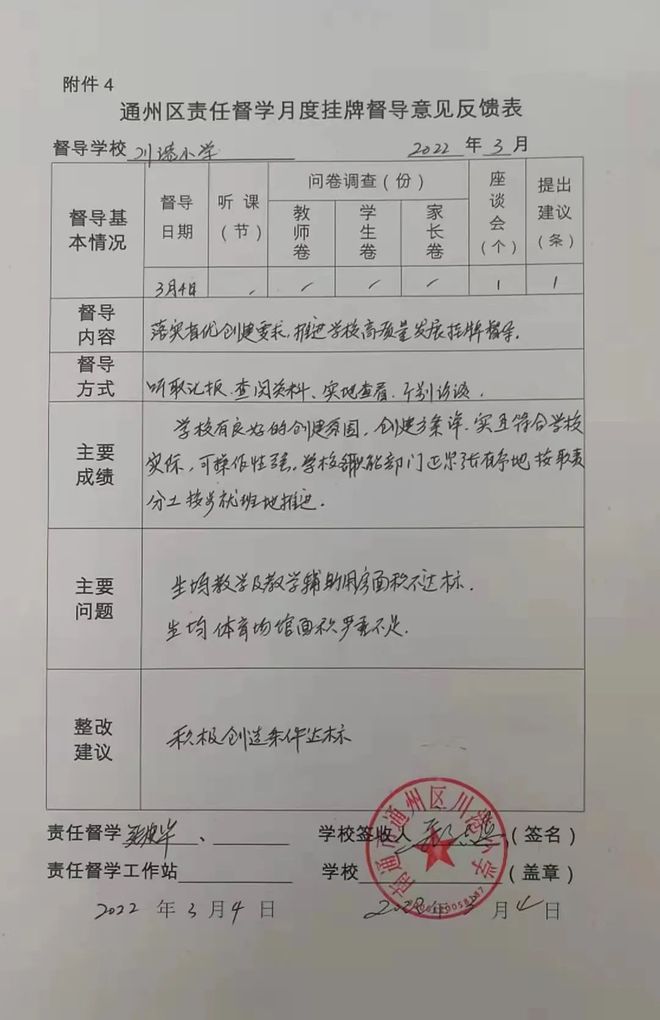 附件4
通州区责任督学月度挂牌督导意见反馈表
督导学校 川港小学 2022 年 3 月
督导基本情况
督导日期
听课(节)
问卷调查(份)
教师卷
学生卷
家长卷
座谈会(个)
提出建议(条)
3月4日 / / / / 1 1
督导内容
落实省优创建要求,推进学校高质量发展挂牌督导.
督导方式
听取汇报、查阅资料、实地查看、个别访谈.
主要成绩
学校有良好的创建氛围,创建方案详实且符合学校
实际,可操作性强.学校各职能部门正紧张有序地按职责
分工按步就班地推进.
主要问题
生均教学及教学辅助用房面积不达标.
生均体育场馆面积严重不足.
整改建议
积极创造条件达标
责任督学 、 学校签收人 (签名)
责任督学工作站 学校 (盖章)
2022 年 3 月 4 日 2022 年 3 月 4 日
南通市通州区川港小学